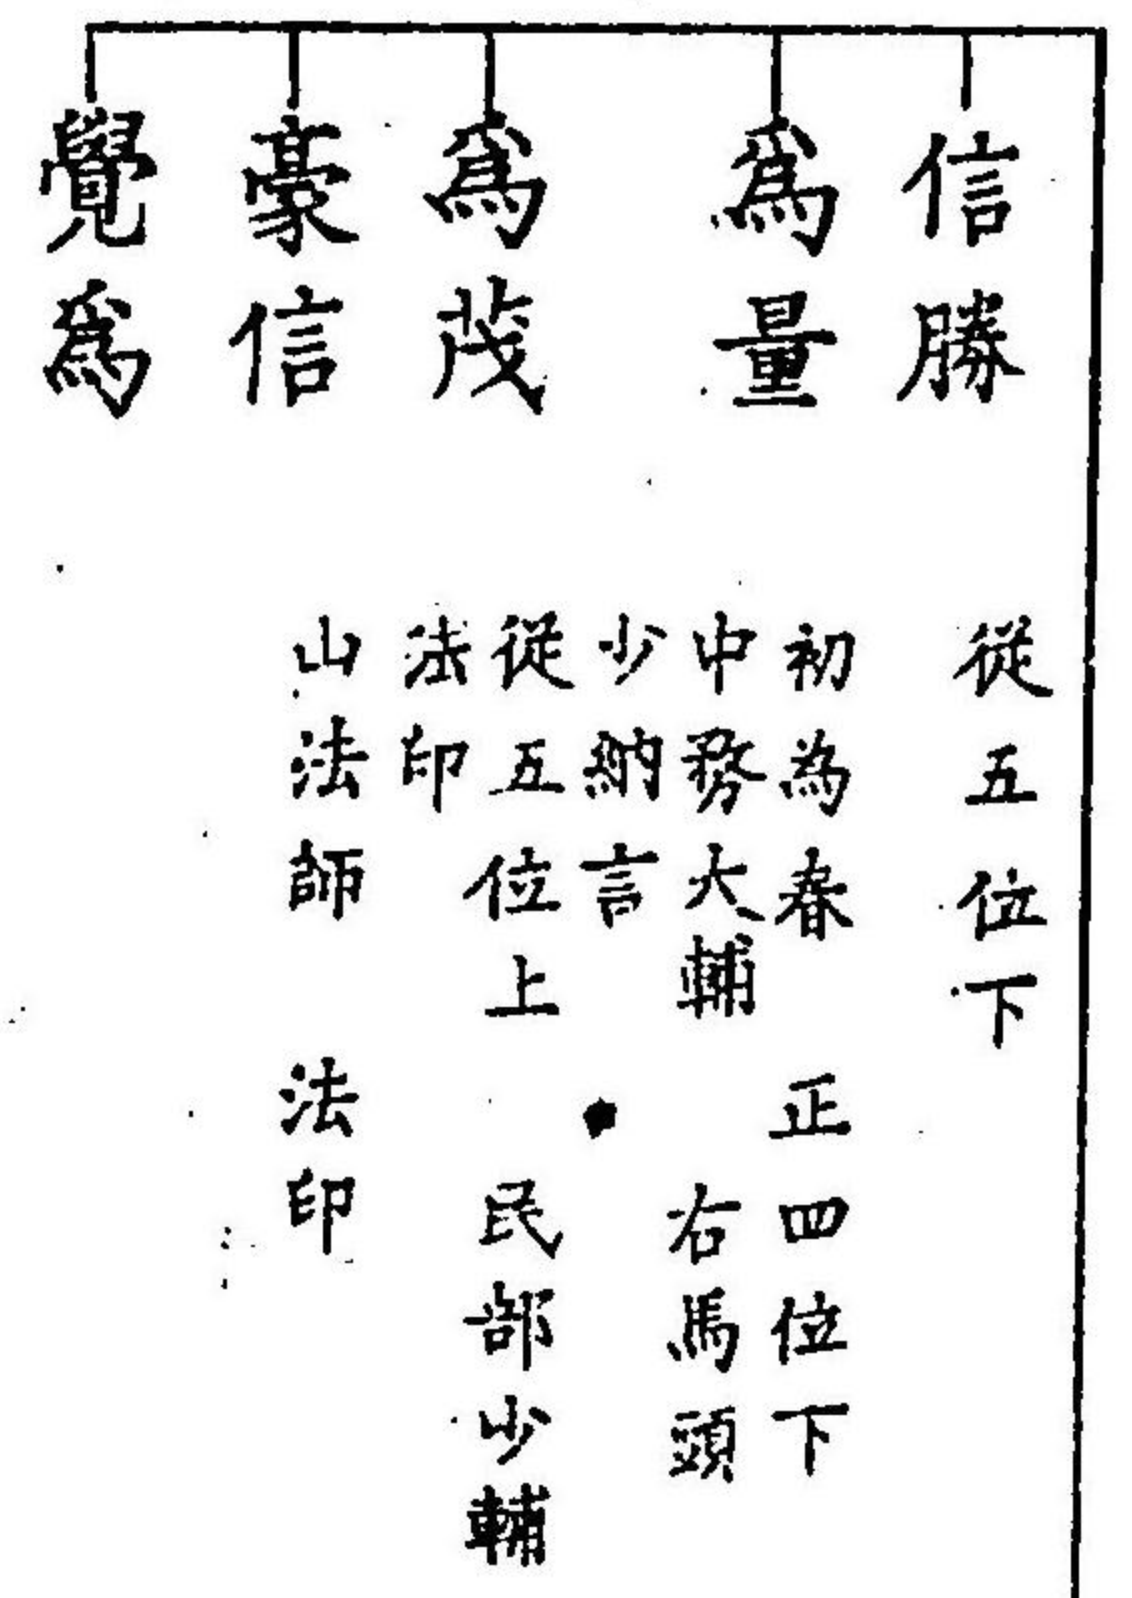 信勝
從五位下
爲量
初為春 正四位下
中務大輔 右馬頭
少納言
爲茂
從五位上 民部少輔
法印
豪信
山法師 法印
覺爲